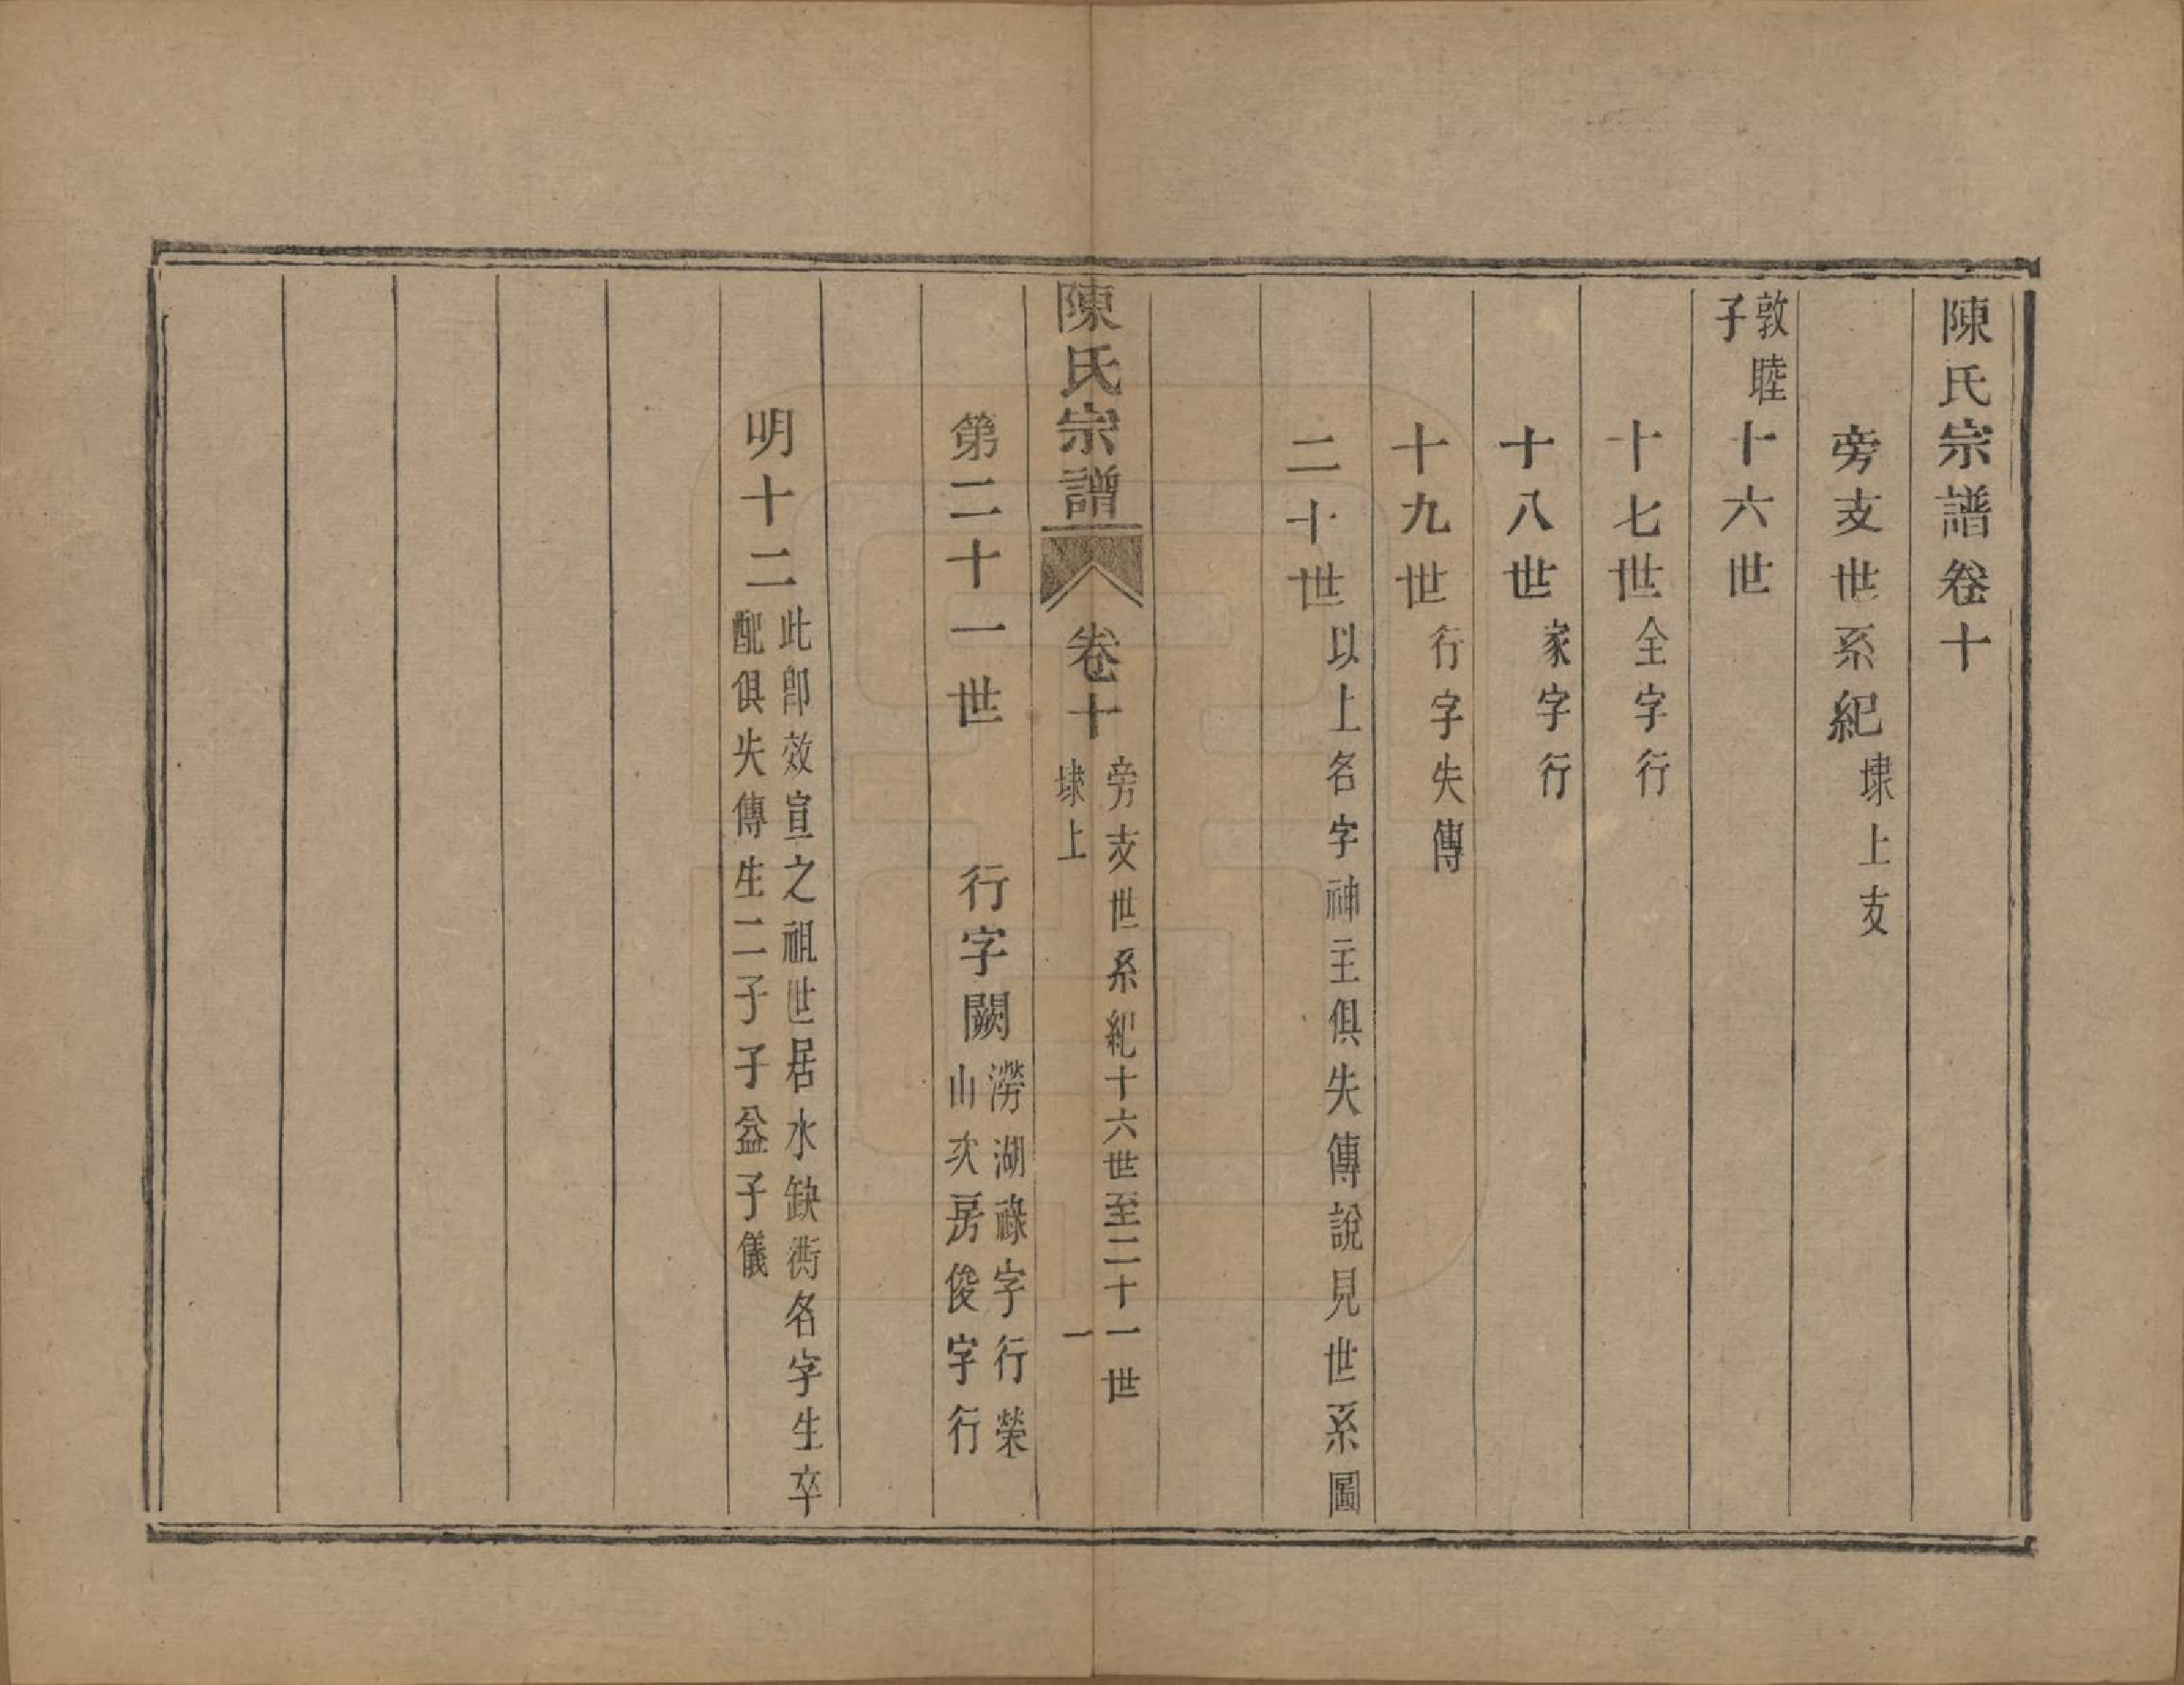 陳氏宗譜卷十
旁支世系紀埭上支
敦睦
子
十六世
十七世全字行
十八世家字行
十九世行字失傳
二十世以上名字神主俱失傳說見世系圖
陳氏宗譜 卷十
旁支世系紀十六世至二十一世
埭上 一
第二十一世 行字闕
澇湖祿字行榮
山次房俊字行
明十二
此卽效宣之祖世居水缺衖名字生卒
配俱失傳生二子子益子儀